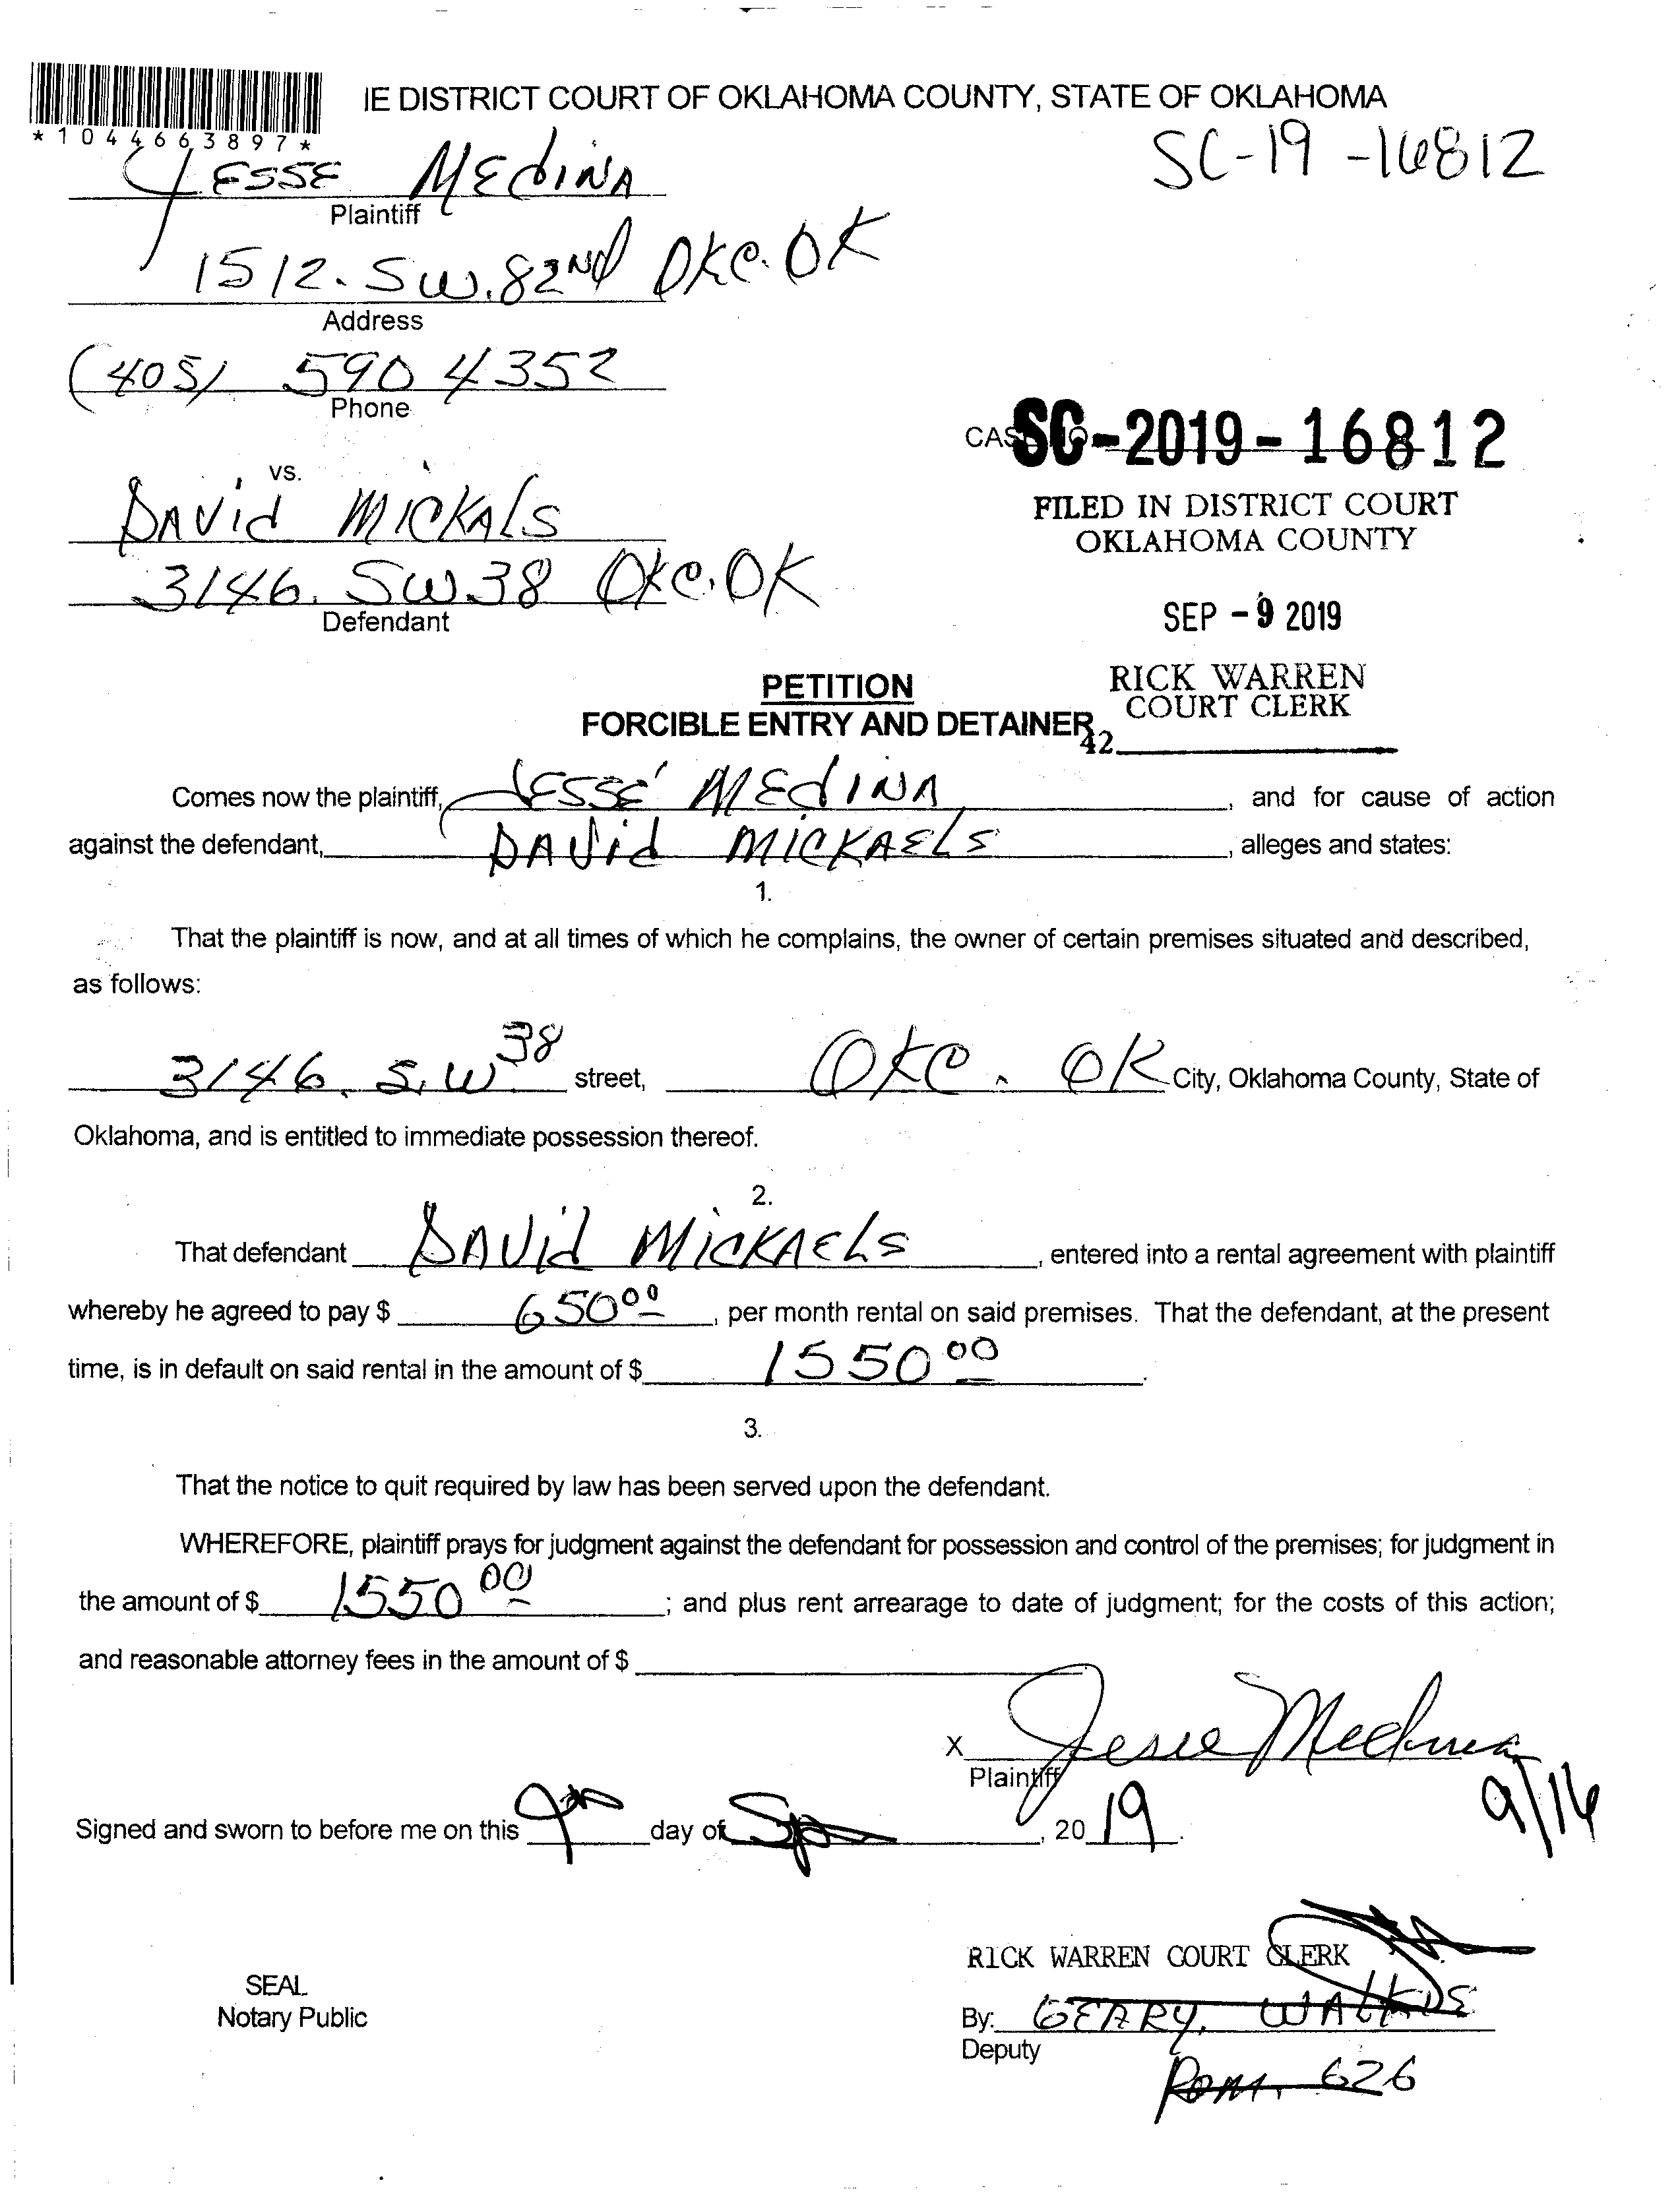 IE DISTRICT COURT OF OKLAHOMA COUNTY, STATE OF OKLAHOMA
*1044663897*
SC-19-16812
JESSE MEDINA
Plaintiff
1512. SW. 82Nd OKC. OK
Address
(405) 590 4352
Phone
SC-2019-16812
FILED IN DISTRICT COURT
OKLAHOMA COUNTY
vs.
DAVid MICKAlS
3146. SW 38 OKC. OK
Defendant
SEP - 9 2019
RICK WARREN
COURT CLERK
42
PETITION
FORCIBLE ENTRY AND DETAINER
Comes now the plaintiff, JESSE MEdINA, and for cause of action
against the defendant, DAVid MICKAELS, alleges and states:
1.
That the plaintiff is now, and at all times of which he complains, the owner of certain premises situated and described,
as follows:
3146. S.W 38 street, OKC. OK City, Oklahoma County, State of
Oklahoma, and is entitled to immediate possession thereof.
2.
That defendant DAVid MICKAELS, entered into a rental agreement with plaintiff
whereby he agreed to pay $ 650 00, per month rental on said premises. That the defendant, at the present
time, is in default on said rental in the amount of $ 1550 00.
3.
That the notice to quit required by law has been served upon the defendant.
WHEREFORE, plaintiff prays for judgment against the defendant for possession and control of the premises; for judgment in
the amount of $ 1550 00; and plus rent arrearage to date of judgment; for the costs of this action;
and reasonable attorney fees in the amount of $
X Jesse Medina
Plaintiff
9/16
Signed and sworn to before me on this 9 day of, 20 19.
RICK WARREN COURT CLERK
SEAL
Notary Public
By: GEARY. WALKDS
Deputy
Rom. 626